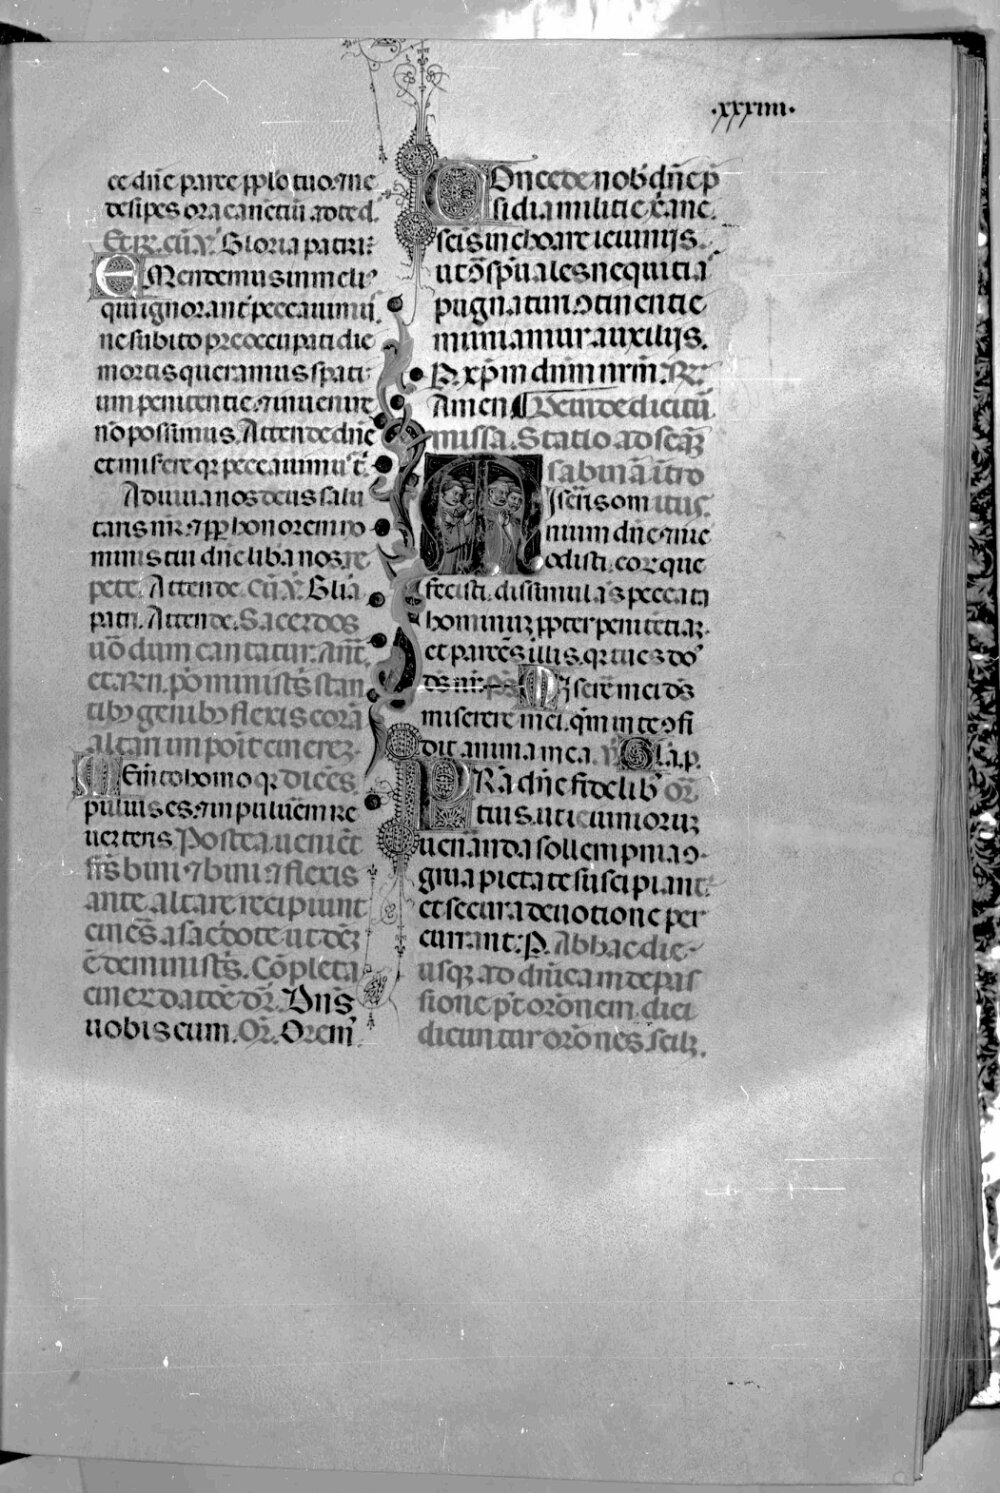 .xxxiiii.
ce dñe parce pplo tuo. ⁊ ne
despicɩas ora canentiũ ad te d.
Et R̃. cũ. ℣. Gloria patri:
EMendemus in meliꝰ
qui ignorant̃ peccauimꝰ.
ne subito preoccupati die
mortis queramus spati
um penitentie. ⁊ inuenire
nõ possimus. Attende dñe
et miserere qꝛ peccauimus t̃.
Adiuua nos deus salu
taris nr̃. ⁊ ꝓp̃ honorem no
minis tui dñe libera nos. re
pete. Attende. cũ. ℣. Glia
patri. Attende. Sacerdos
uõ dum cantatur. añt̃.
et. Ren. põ ministr̃s stan
tibꝰ genibꝰ flexis corã
altari imponit cinerez.
MEm̃to homo qꝛ dicens
puluis es. ⁊ in puluẽm re
uerteris. Postea ueniẽt
fr̃s bini ⁊ bini ⁊ flexis
ante altare recipiunt
cineñs. a sac̃dote ut dcz̃
ẽ de ministr̃s. Cõpleta
cinerz datõe dr̃. Dñs
uobiscum. Or̃. Oremꝰ
COncede nob̃ dñe p̃
sidia militie xp̃iane
scĩs inchoare ieiuniis.
ut ꝯ̃ sp̃uales nequitiaˢ
pugnaturi. ꝯtinentie
muniamur auxiliis.
P. xp̃m dñm nr̃m: R̃.
Amen ¶ Deinde dicitũ
missa. Statio ad scãz
sabinã. ĩtro
MIsereris omniuitus.
nium dñe. ⁊ nic
odisti. eorque
fecisti. dissimulaˢ peccata
hominuꝫ ꝓpter penitẽtiaꝫ.
et parcẽs illis. qꝛ tu es dõs
dš nr̃. ps̃. MIserere mei ds̃
miserere mei. qm̃ in te ꝯfi
dit anima mea. ℣. Gla. p.
PRa dñe fidelibꝰ or̃.
tuis. ut ieiunioruꝫ
ueneranda sollempnia ꝯ
grua pietate suscipiant.
et secura deuotione per
currant: P. Ab hac die
usqꝫ ad dñicam de pas
sione pꝰt orõnem diei
dicuntur orõnes. scilꝫ.